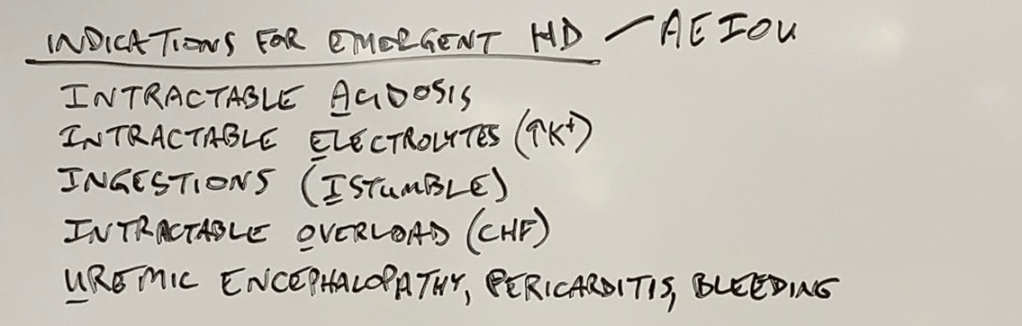 INDICATIONS FOR EMERGENT HD - AEIOU
INTRACTABLE ACIDOSIS
INTRACTABLE ELECTROLYTES (↑K+)
INGESTIONS (ISTUMBLE)
INTRACTABLE OVERLOAD (CHF)
UREMIC ENCEPHALOPATHY, PERICARDITIS, BLEEDING